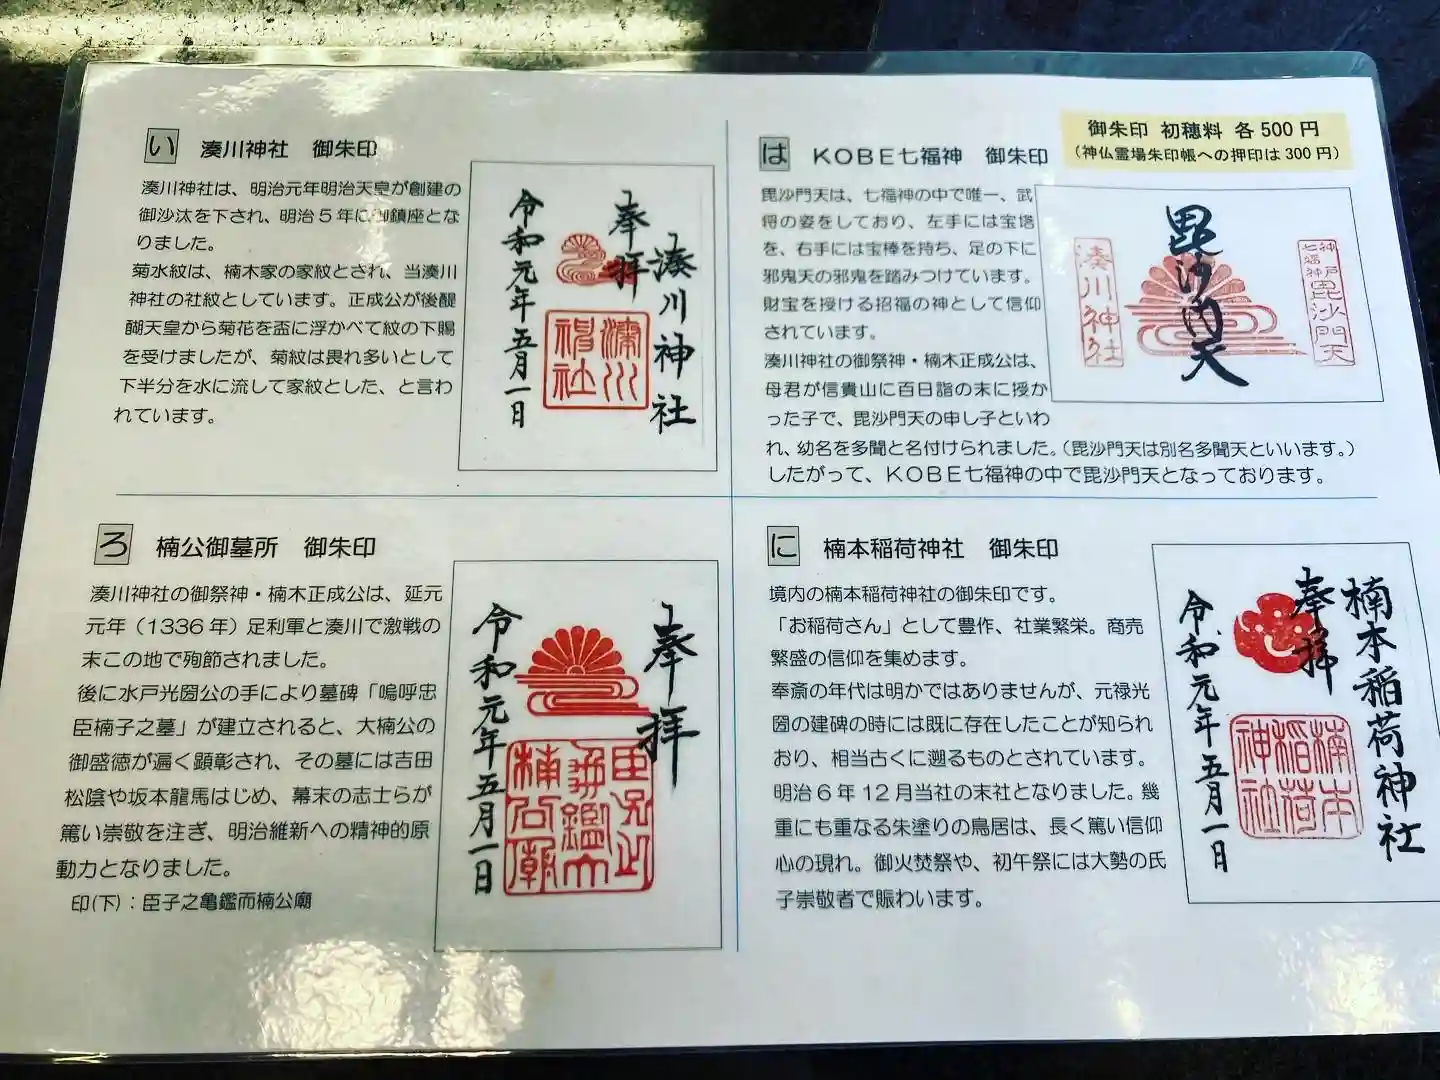 い 湊川神社 御朱印
湊川神社は、明治元年明治天皇が創建の
御沙汰を下され、明治5年に御鎮座とな
りました。
菊水紋は、楠木家の家紋とされ、当湊川
神社の社紋としています。正成公が後醍
醐天皇から菊花を盃に浮かべて紋の下賜
を受けましたが、菊紋は畏れ多いとして
下半分を水に流して家紋とした、と言わ
れています。
奉拝
湊川神社
令和元年五月一日
湊川神社
は KOBE七福神 御朱印
御朱印 初穂料 各500円
(神仏霊場朱印帳への押印は300円)
毘沙門天は、七福神の中で唯一、武
将の姿をしており、左手には宝塔
を、右手には宝棒を持ち、足の下に
邪鬼天の邪鬼を踏みつけています。
財宝を授ける招福の神として信仰
されています。
湊川神社の御祭神・楠木正成公は、
母君が信貴山に百日詣の末に授か
った子で、毘沙門天の申し子といわ
れ、幼名を多聞と名付けられました。(毘沙門天は別名多聞天といいます。)
したがって、KOBE七福神の中で毘沙門天となっております。
神戸七福神 毘沙門天
毘沙門天
湊川神社
ろ 楠公御墓所 御朱印
湊川神社の御祭神・楠木正成公は、延元
元年(1336年)足利軍と湊川で激戦の
末この地で殉節されました。
後に水戸光圀公の手により墓碑「嗚呼忠
臣楠子之墓」が建立されると、大楠公の
御盛徳が遍く顕彰され、その墓には吉田
松陰や坂本龍馬はじめ、幕末の志士らが
篤い崇敬を注ぎ、明治維新への精神的原
動力となりました。
印(下):臣子之亀鑑而楠公廟
奉拝
令和元年五月一日
臣子之亀鑑而楠公廟
に 楠本稲荷神社 御朱印
境内の楠本稲荷神社の御朱印です。
「お稲荷さん」として豊作、社業繁栄。商売
繁盛の信仰を集めます。
奉斎の年代は明かではありませんが、元禄光
圀の建碑の時には既に存在したことが知られ
おり、相当古くに遡るものとされています。
明治6年12月当社の末社となりました。幾
重にも重なる朱塗りの鳥居は、長く篤い信仰
心の現れ。御火焚祭や、初午祭には大勢の氏
子崇敬者で賑わいます。
楠本稲荷神社
奉拝
令和元年五月一日
楠本稲荷神社